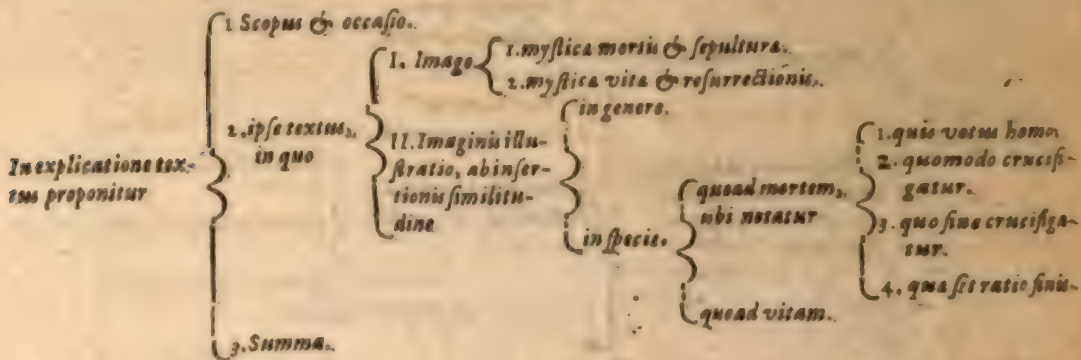 In explicatione tex-
tus proponitur
1 Scopus & occaſio.
2. ipſe textus,
in quo
I. Imago
1. myſtica mortis & ſepulturæ.
2. myſtica vitæ & reſurrectionis.
II. Imaginis illu-
ſtratio, ab inſer-
tionis ſimilitu-
dine
in genere.
in ſpecie.
quoad mortem,
ubi notatur
1. quis vetus homo.
2. quomodo crucifi-
gatur.
3. quo fine crucifiga-
tur.
4. quæ ſit ratio finis.
quoad vitam.
3. Summa.